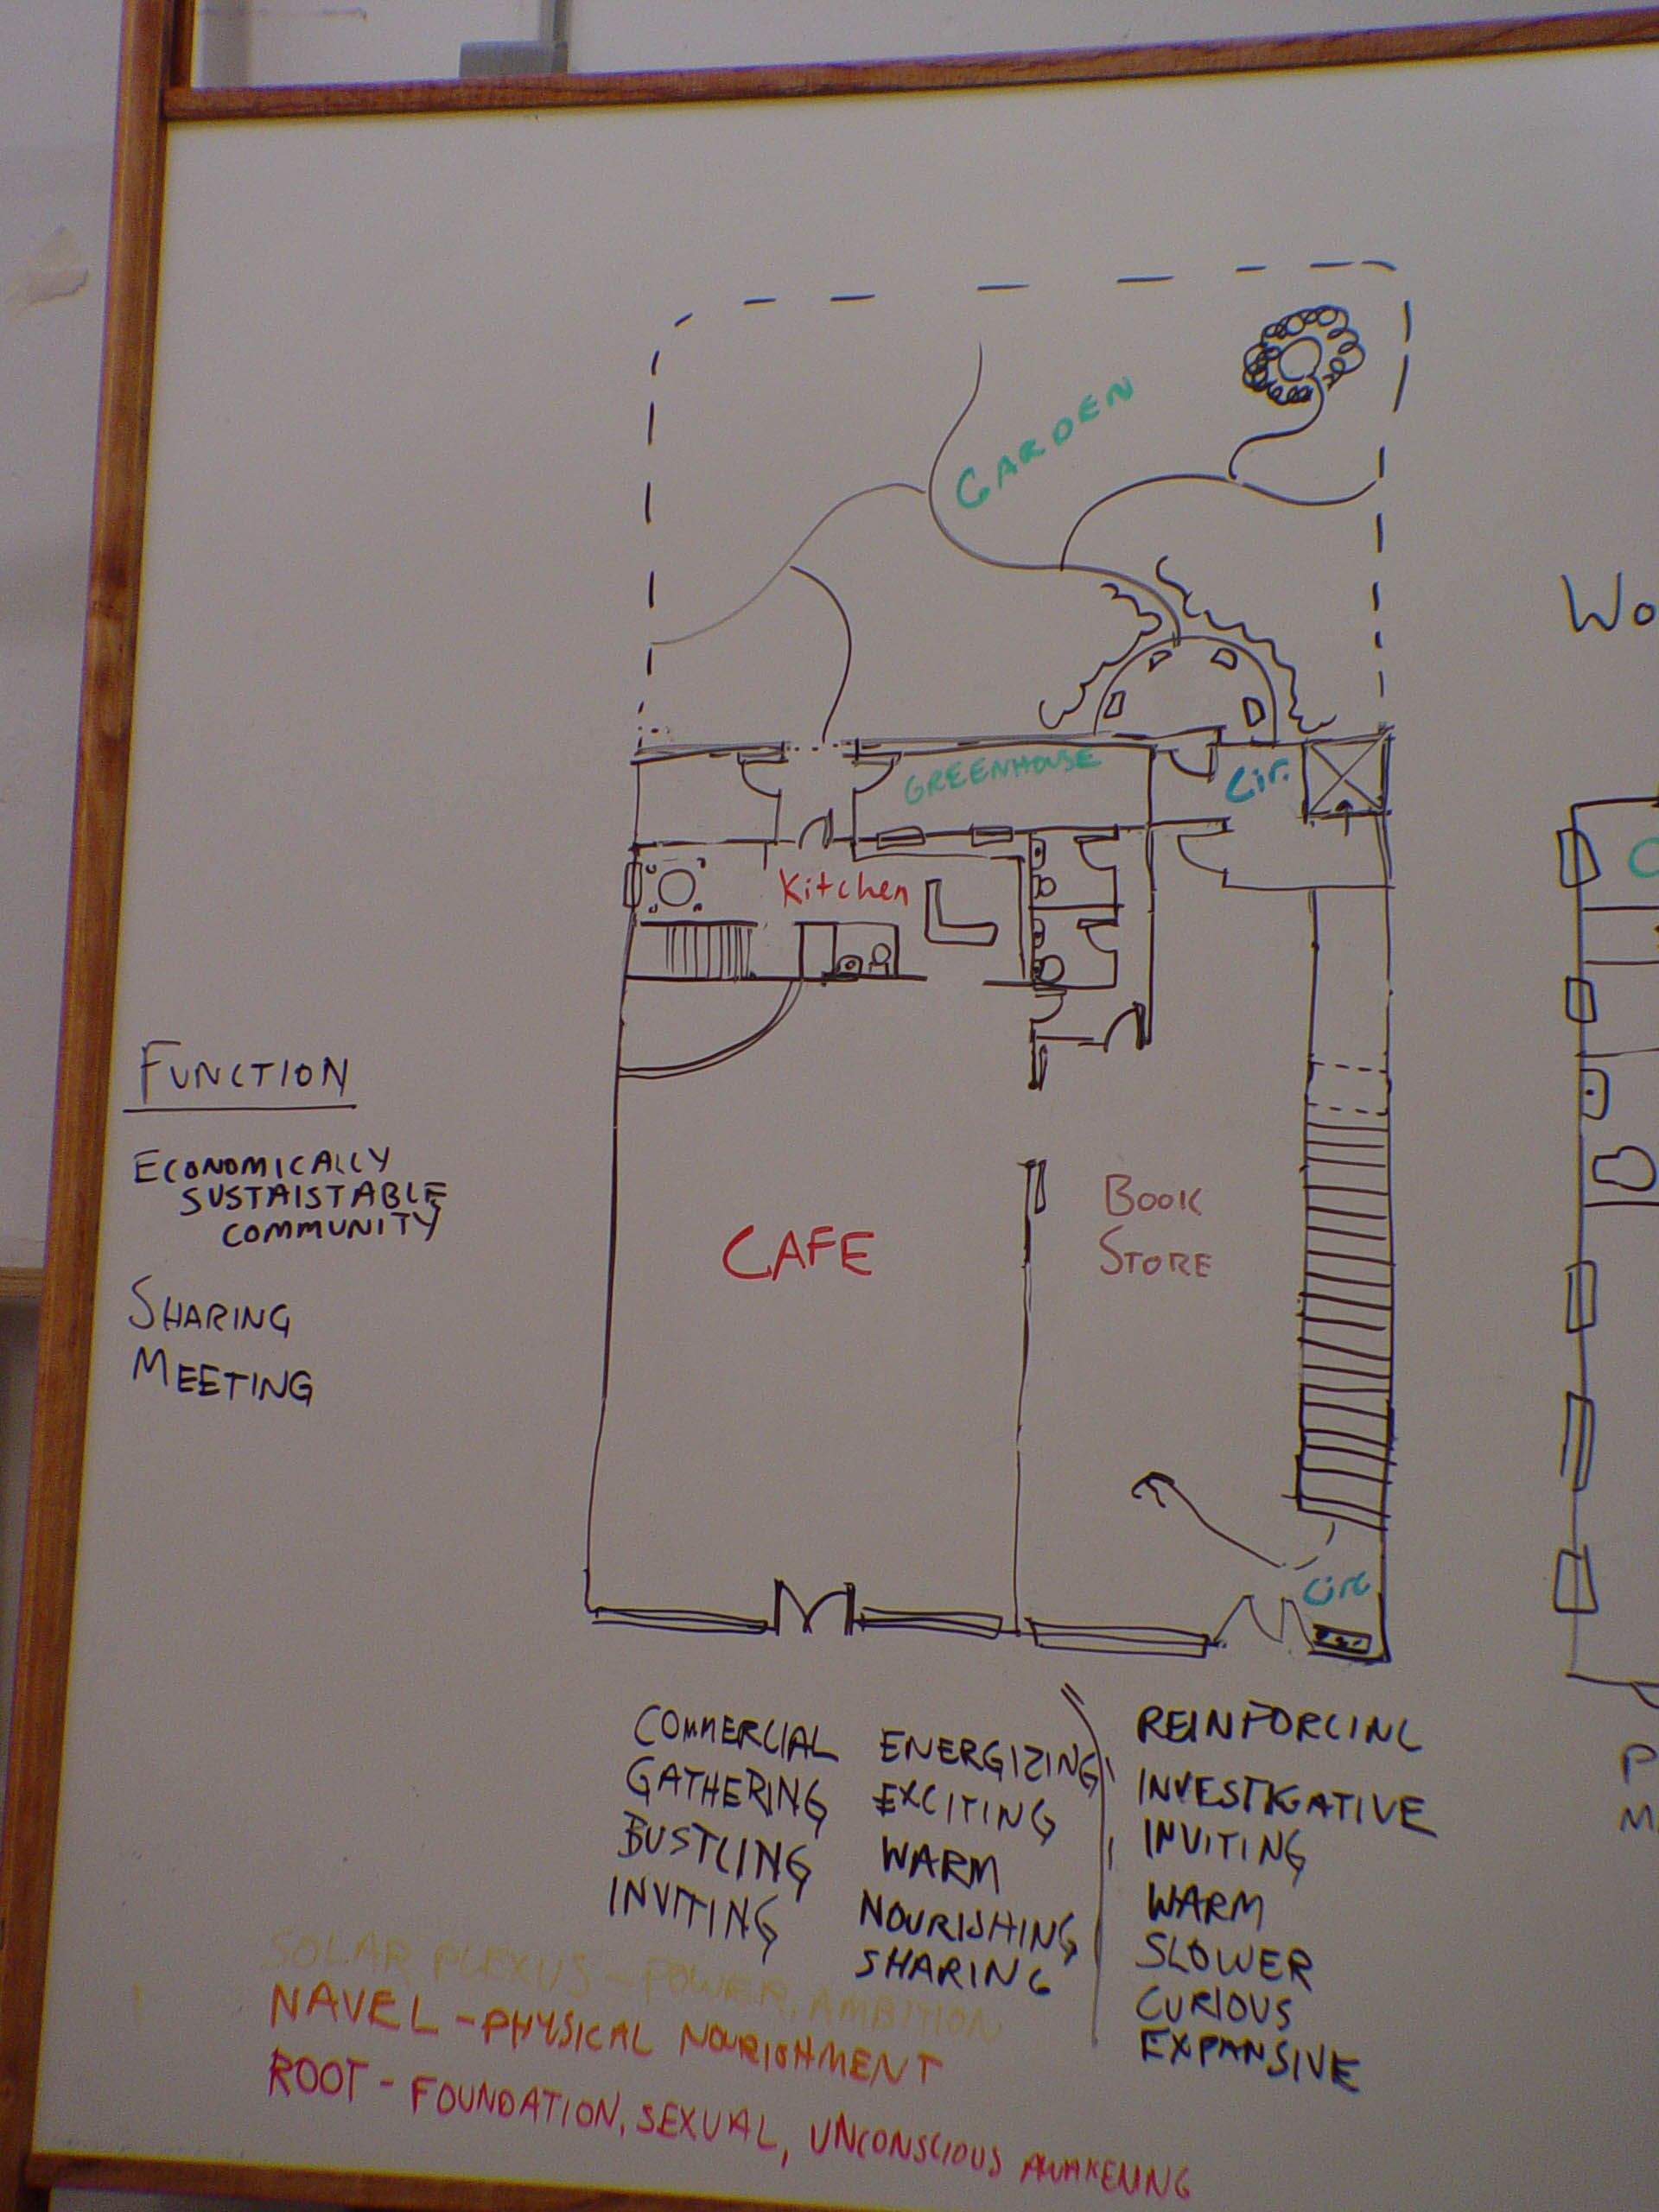 GARDEN
Wo
GREENHOUSE
Cir.
Kitchen
FUNCTION
ECONOMICALLY
SUSTAISTABLE
COMMUNITY
SHARING
MEETING
CAFE
BOOK
STORE
Circ
COMMERCIAL ENERGIZING
GATHERING EXCITING
BUSTLING WARM
INVITING NOURISHING
SHARING
REINFORCING
INVESTIGATIVE
INVITING
WARM
SLOWER
CURIOUS
EXPANSIVE
P
M
SOLAR PLEXUS - POWER, AMBITION
NAVEL - PHYSICAL NOURISHMENT
ROOT - FOUNDATION, SEXUAL, UNCONSCIOUS AWAKENING